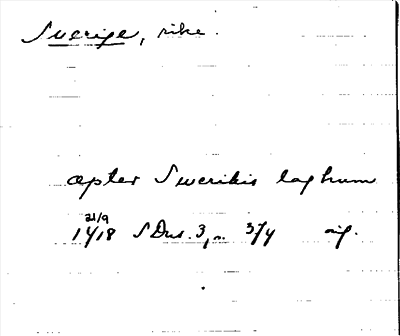 Sverige, rike.
æpter Swerikis laghum
21/9
1418 SDns. 3, n. 374 orig.